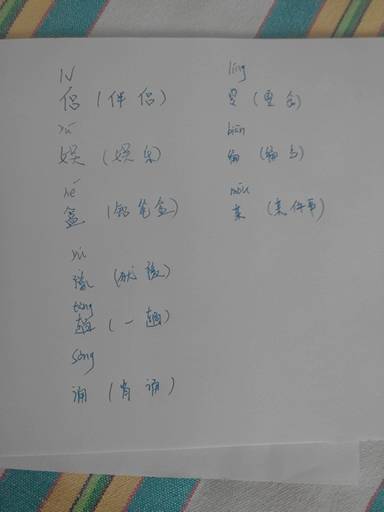 lv
侣 (伴侣)
yú
娱 (娱乐)
hé
盒 (铅笔盒)
yù
豫 (犹豫)
tàng
趟 (一趟)
sòng
诵 (背诵)
líng
biān
编
mǒu
某 (某件事)